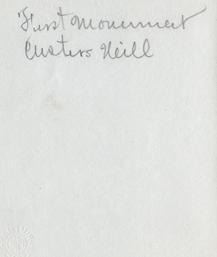 'First Monument
Custers Hill